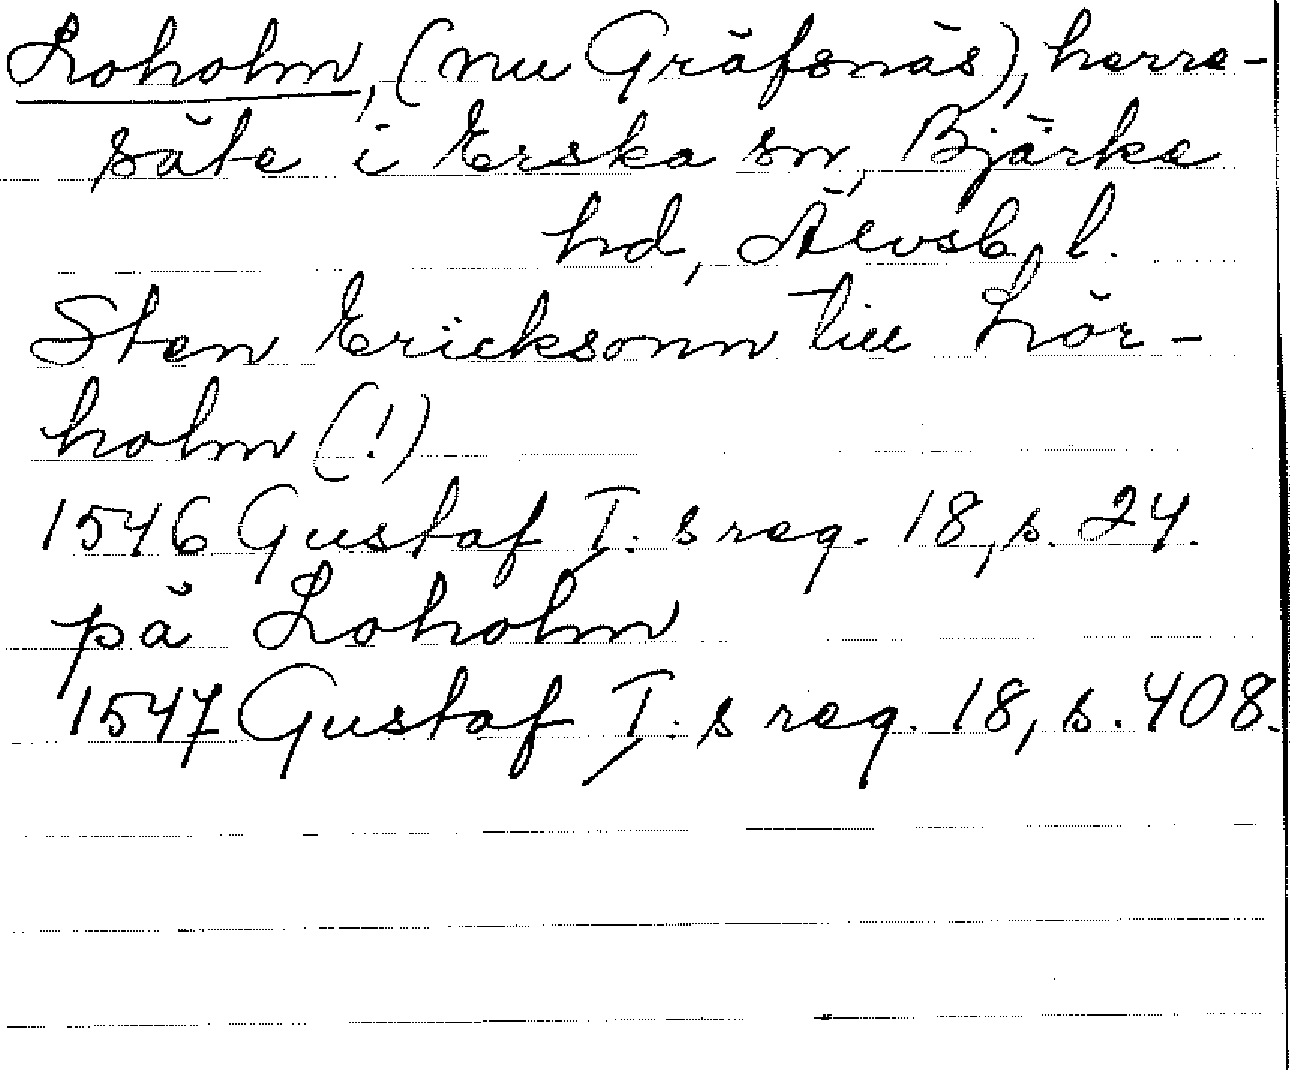 Loholm, (nu Gräfsnäs), herre-
säte i Erska sn, Bjärke
hd, Älvsb. l.
Sten Ericksonn till Lör-
holm (!)
1546 Gustaf I:s reg. 18, s. 24.
på Loholm
1547 Gustaf I:s reg. 18, s. 408.